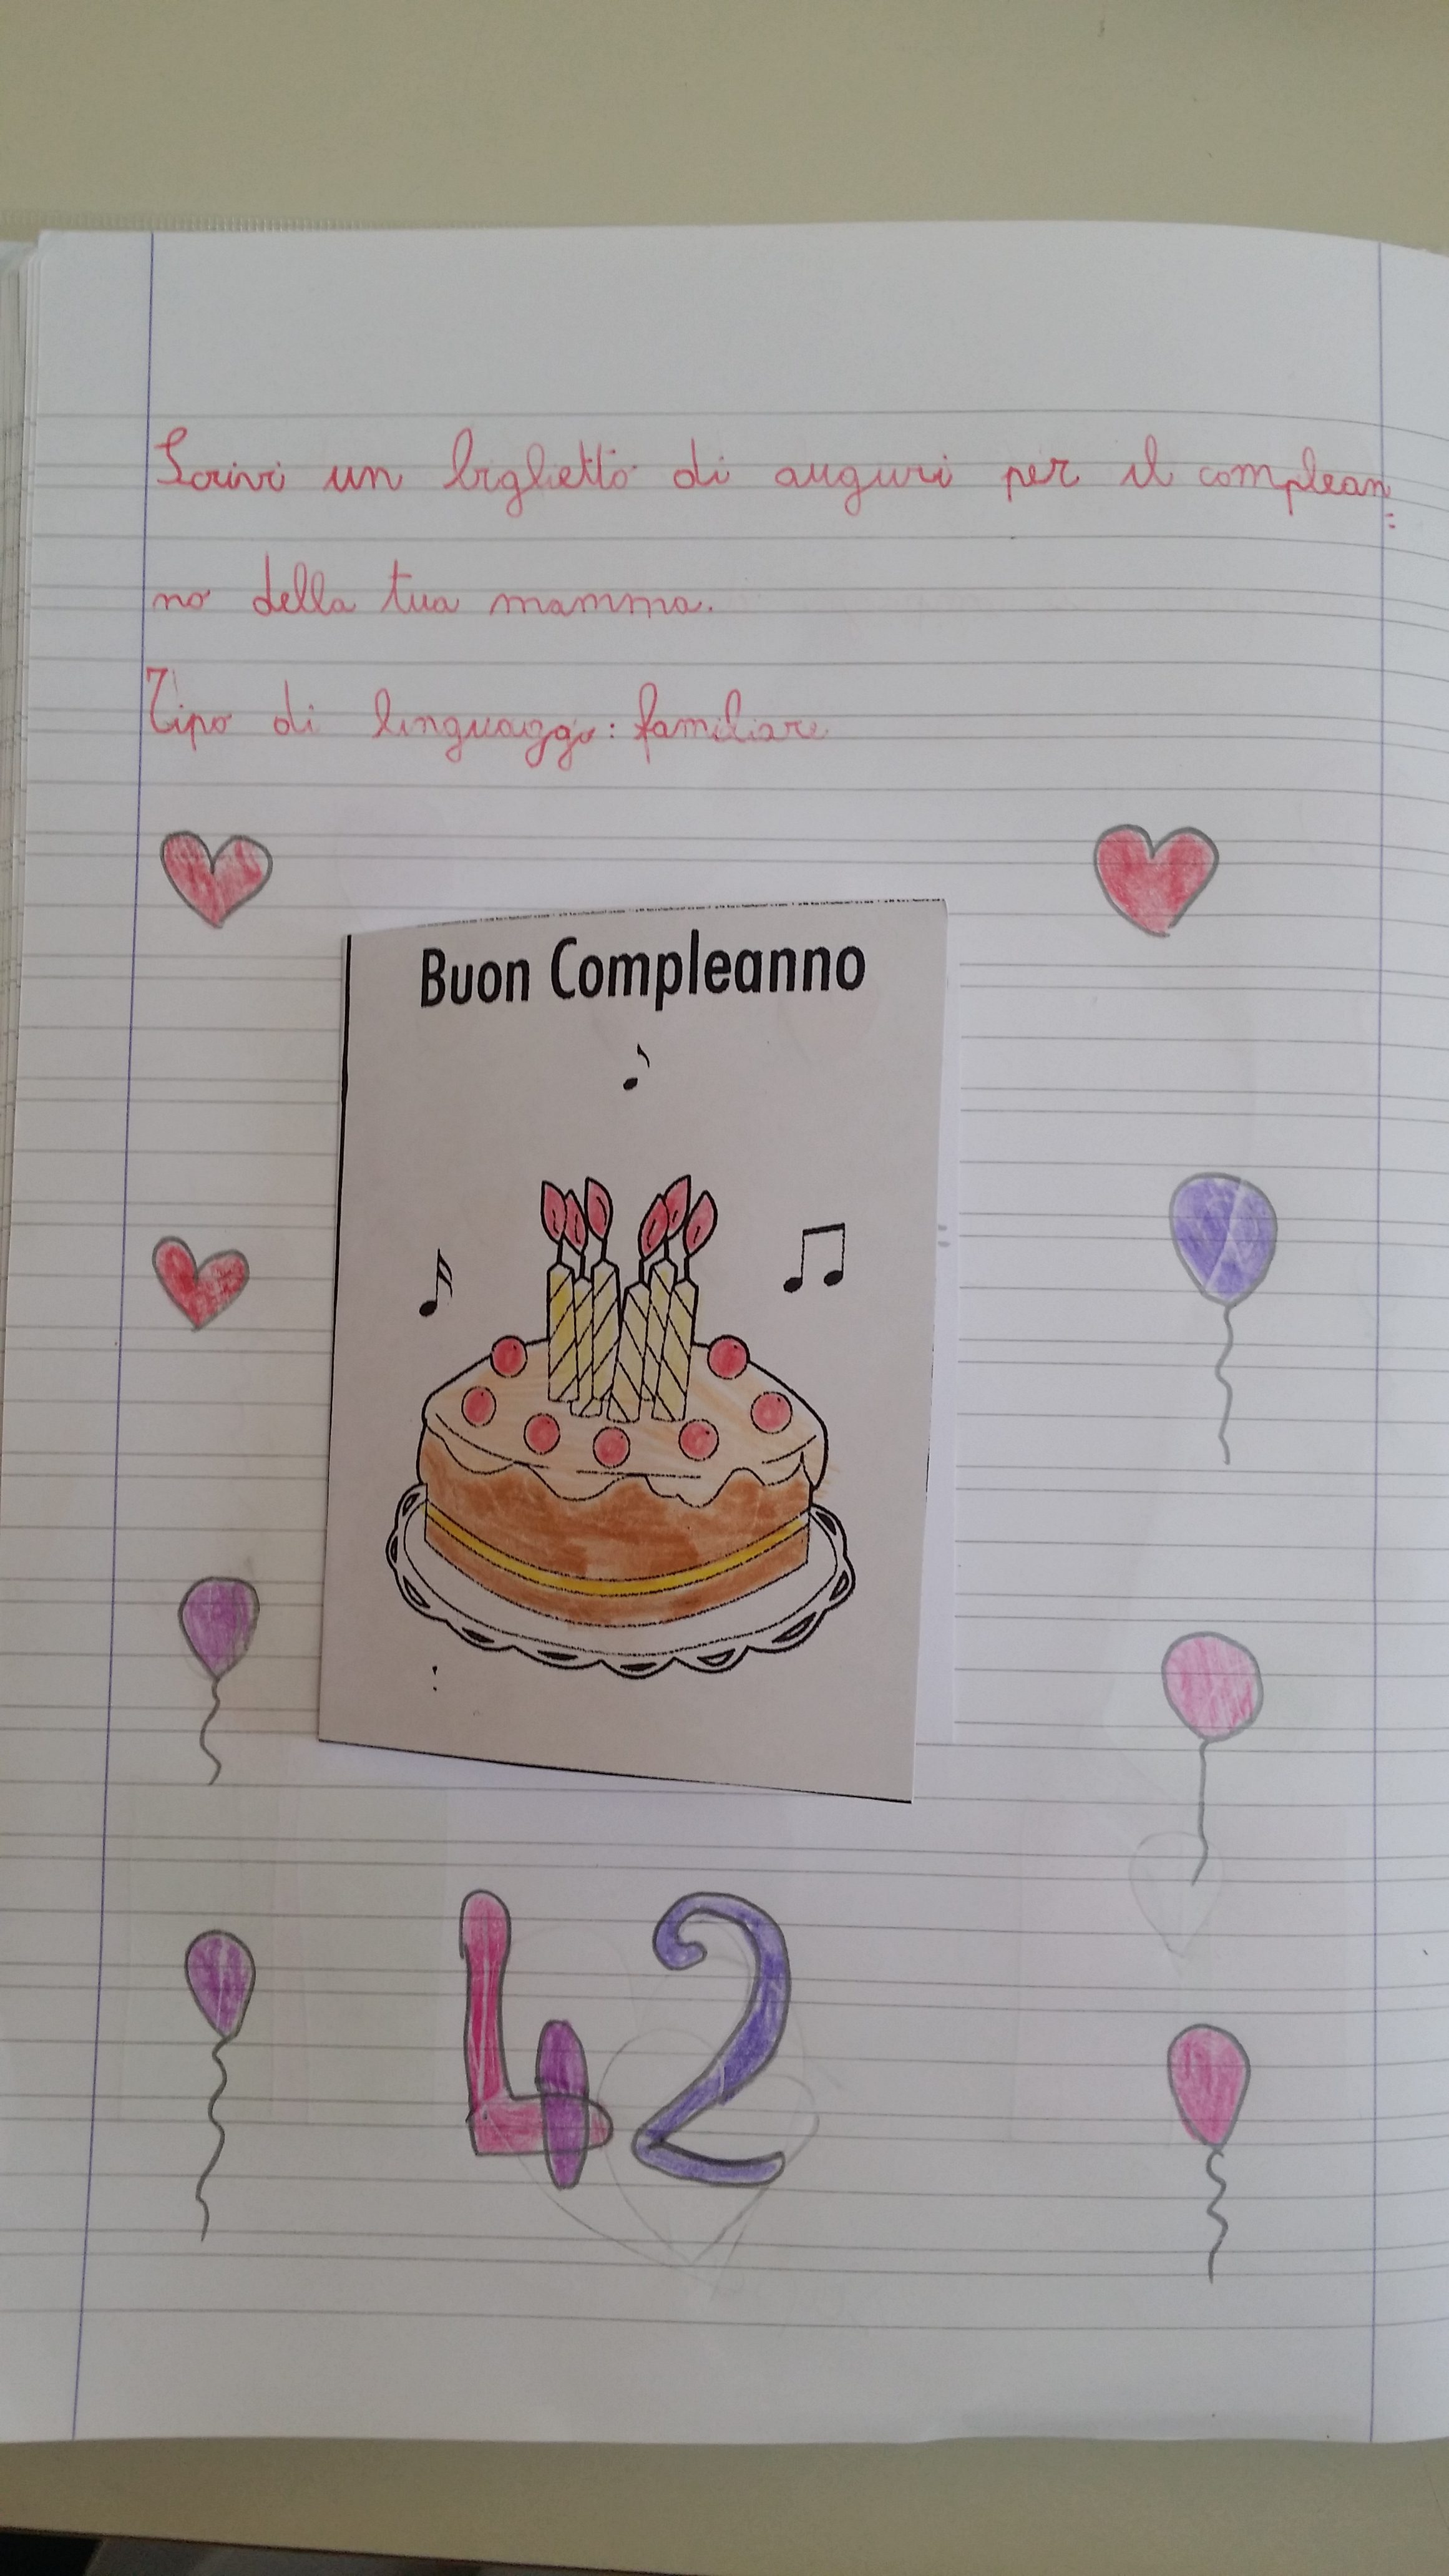 Scrivi un biglietto di auguri per il complean=
no della tua mamma.
Tipo di linguaggo: familiare
Buon Compleanno
42